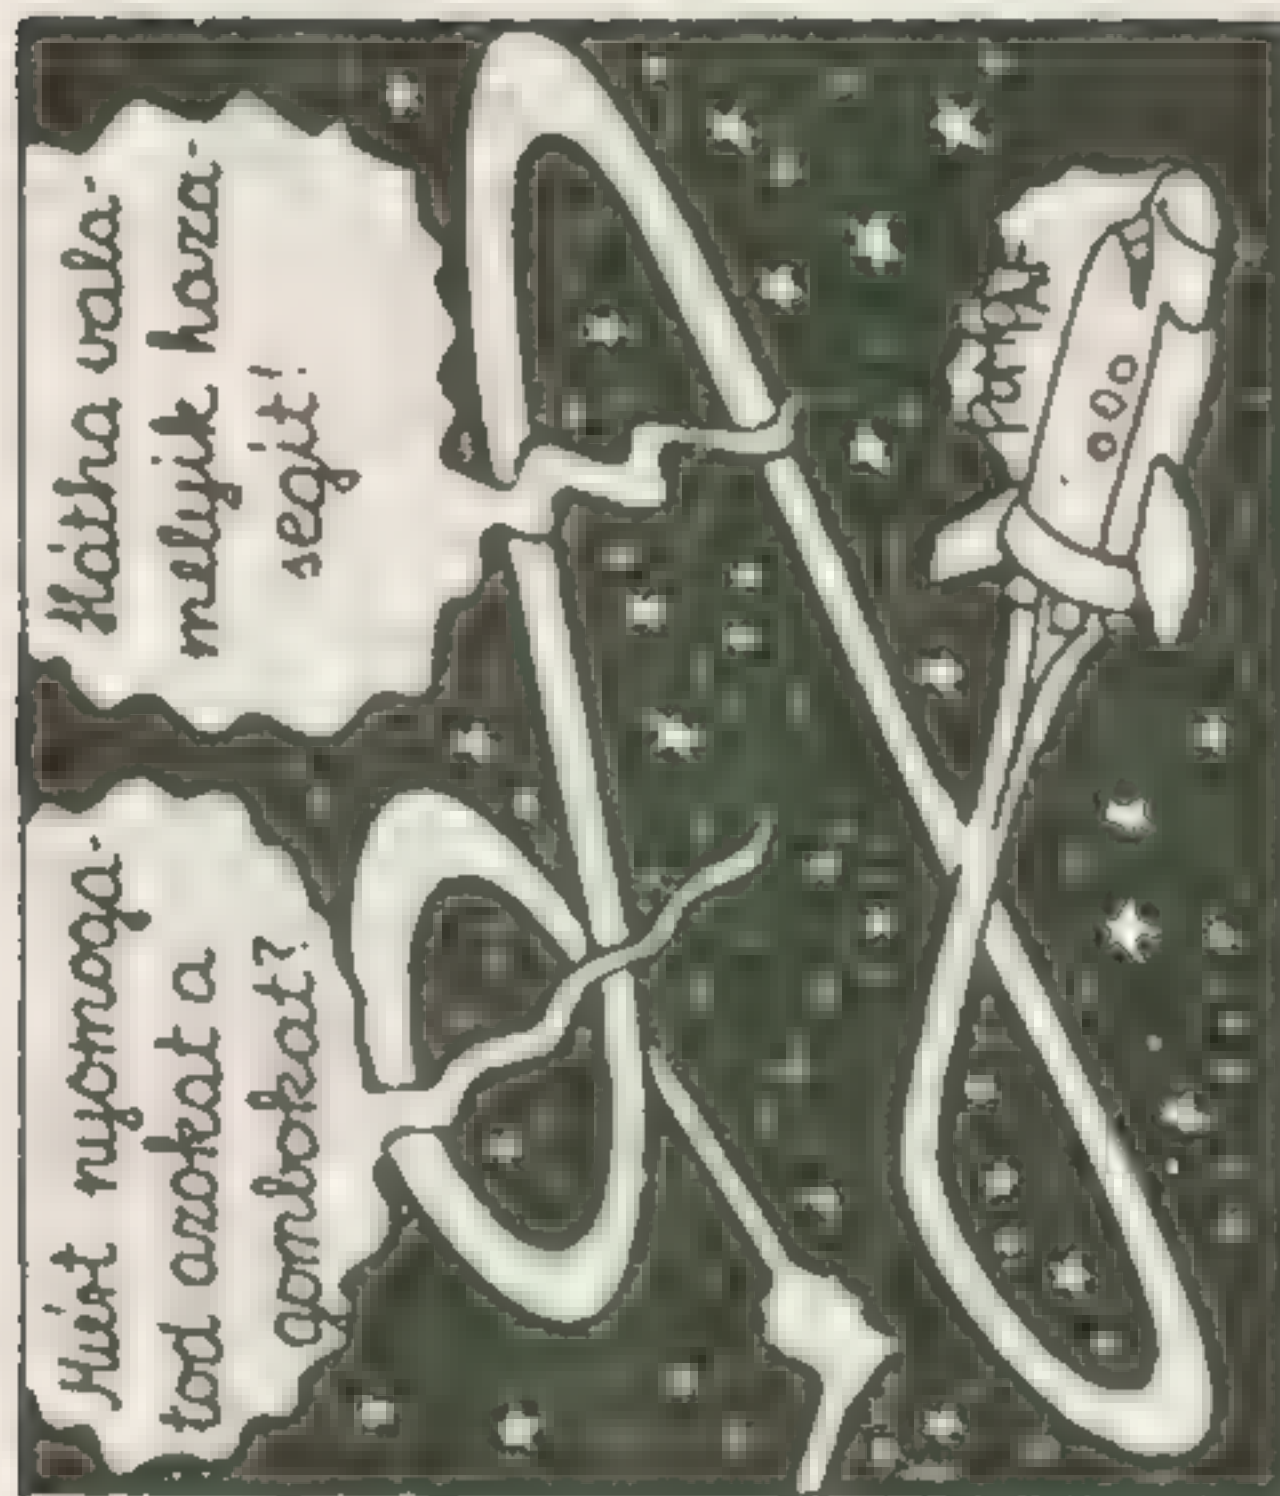 Miért nyomoga-
tod azokat a
gombokat?
Hátha vala-
melyik haza-
segít!